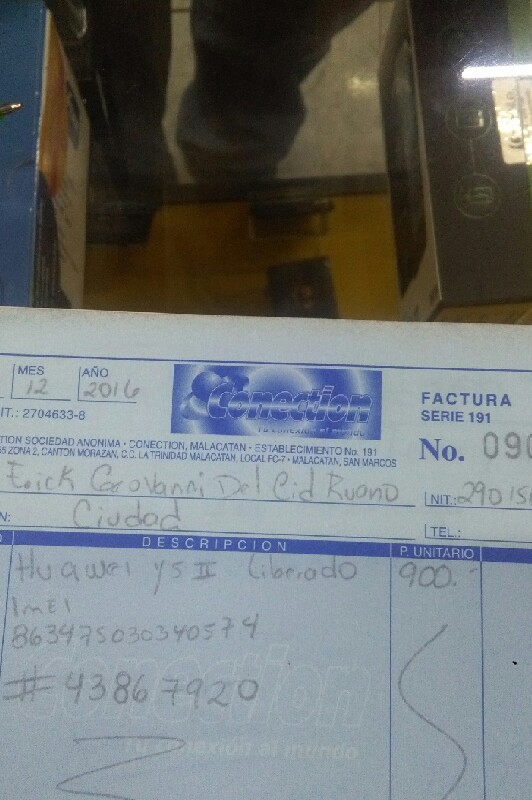 MES
AÑO
12
2016
IT.: 2704633-8
Conection
Tu conexión al mundo
FACTURA
SERIE 191
No. 090
TION SOCIEDAD ANONIMA • CONECTION, MALACATAN • ESTABLECIMIENTO No. 191
ZONA 2, CANTON MORAZAN, C.C. LA TRINIDAD MALACATAN, LOCAL FC-7 • MALACATAN, SAN MARCOS
Erick Geovanni Del Cid Ruano
NIT: 29015
N: Ciudad
TEL.:
DESCRIPCION
P. UNITARIO
Huawei y5 II Liberado 900.-
Imei
863475030340574
# 43867920
conection
Tu conexión al mundo